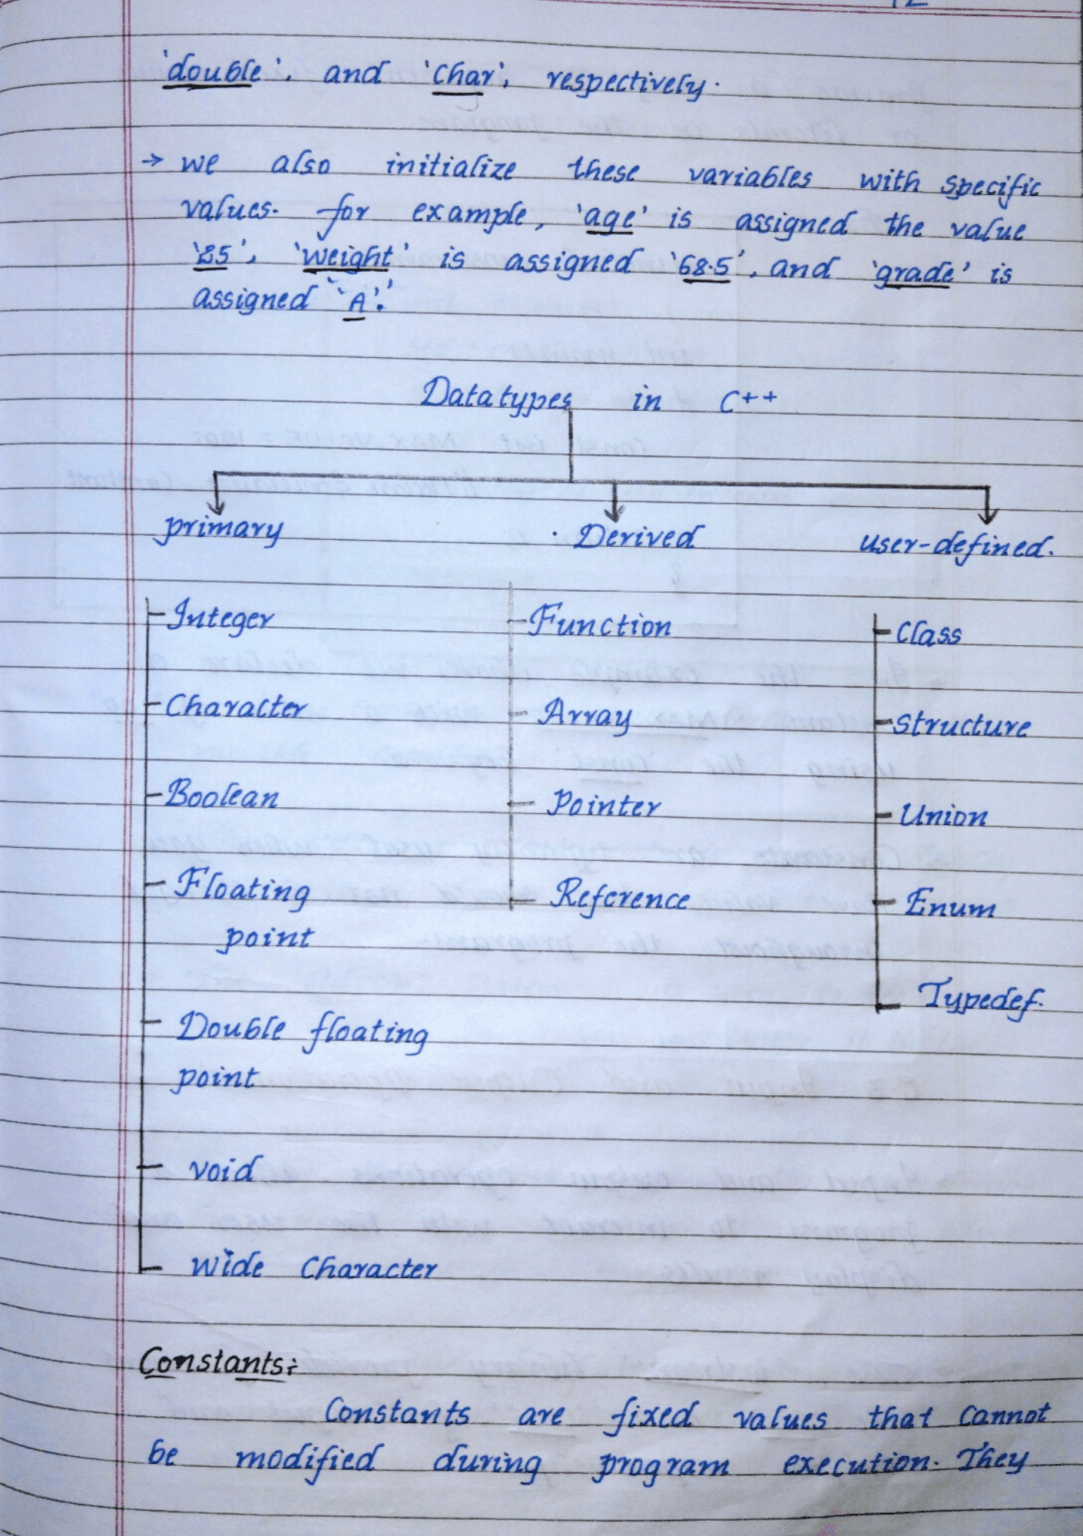 'double', and 'char', respectively.
→ we also initialize these variables with specific
values. for example, 'age' is assigned the value
'25', 'weight' is assigned '68.5', and 'grade' is
assigned ''A'.'
Datatypes in C++
primary
Derived
user-defined.
Integer
Character
Boolean
Floating
point
Double floating
point
void
Wide Character
Function
Array
Pointer
Reference
Class
Structure
Union
Enum
Typedef.
Constants:
Constants are fixed values that cannot
be modified during program execution. They